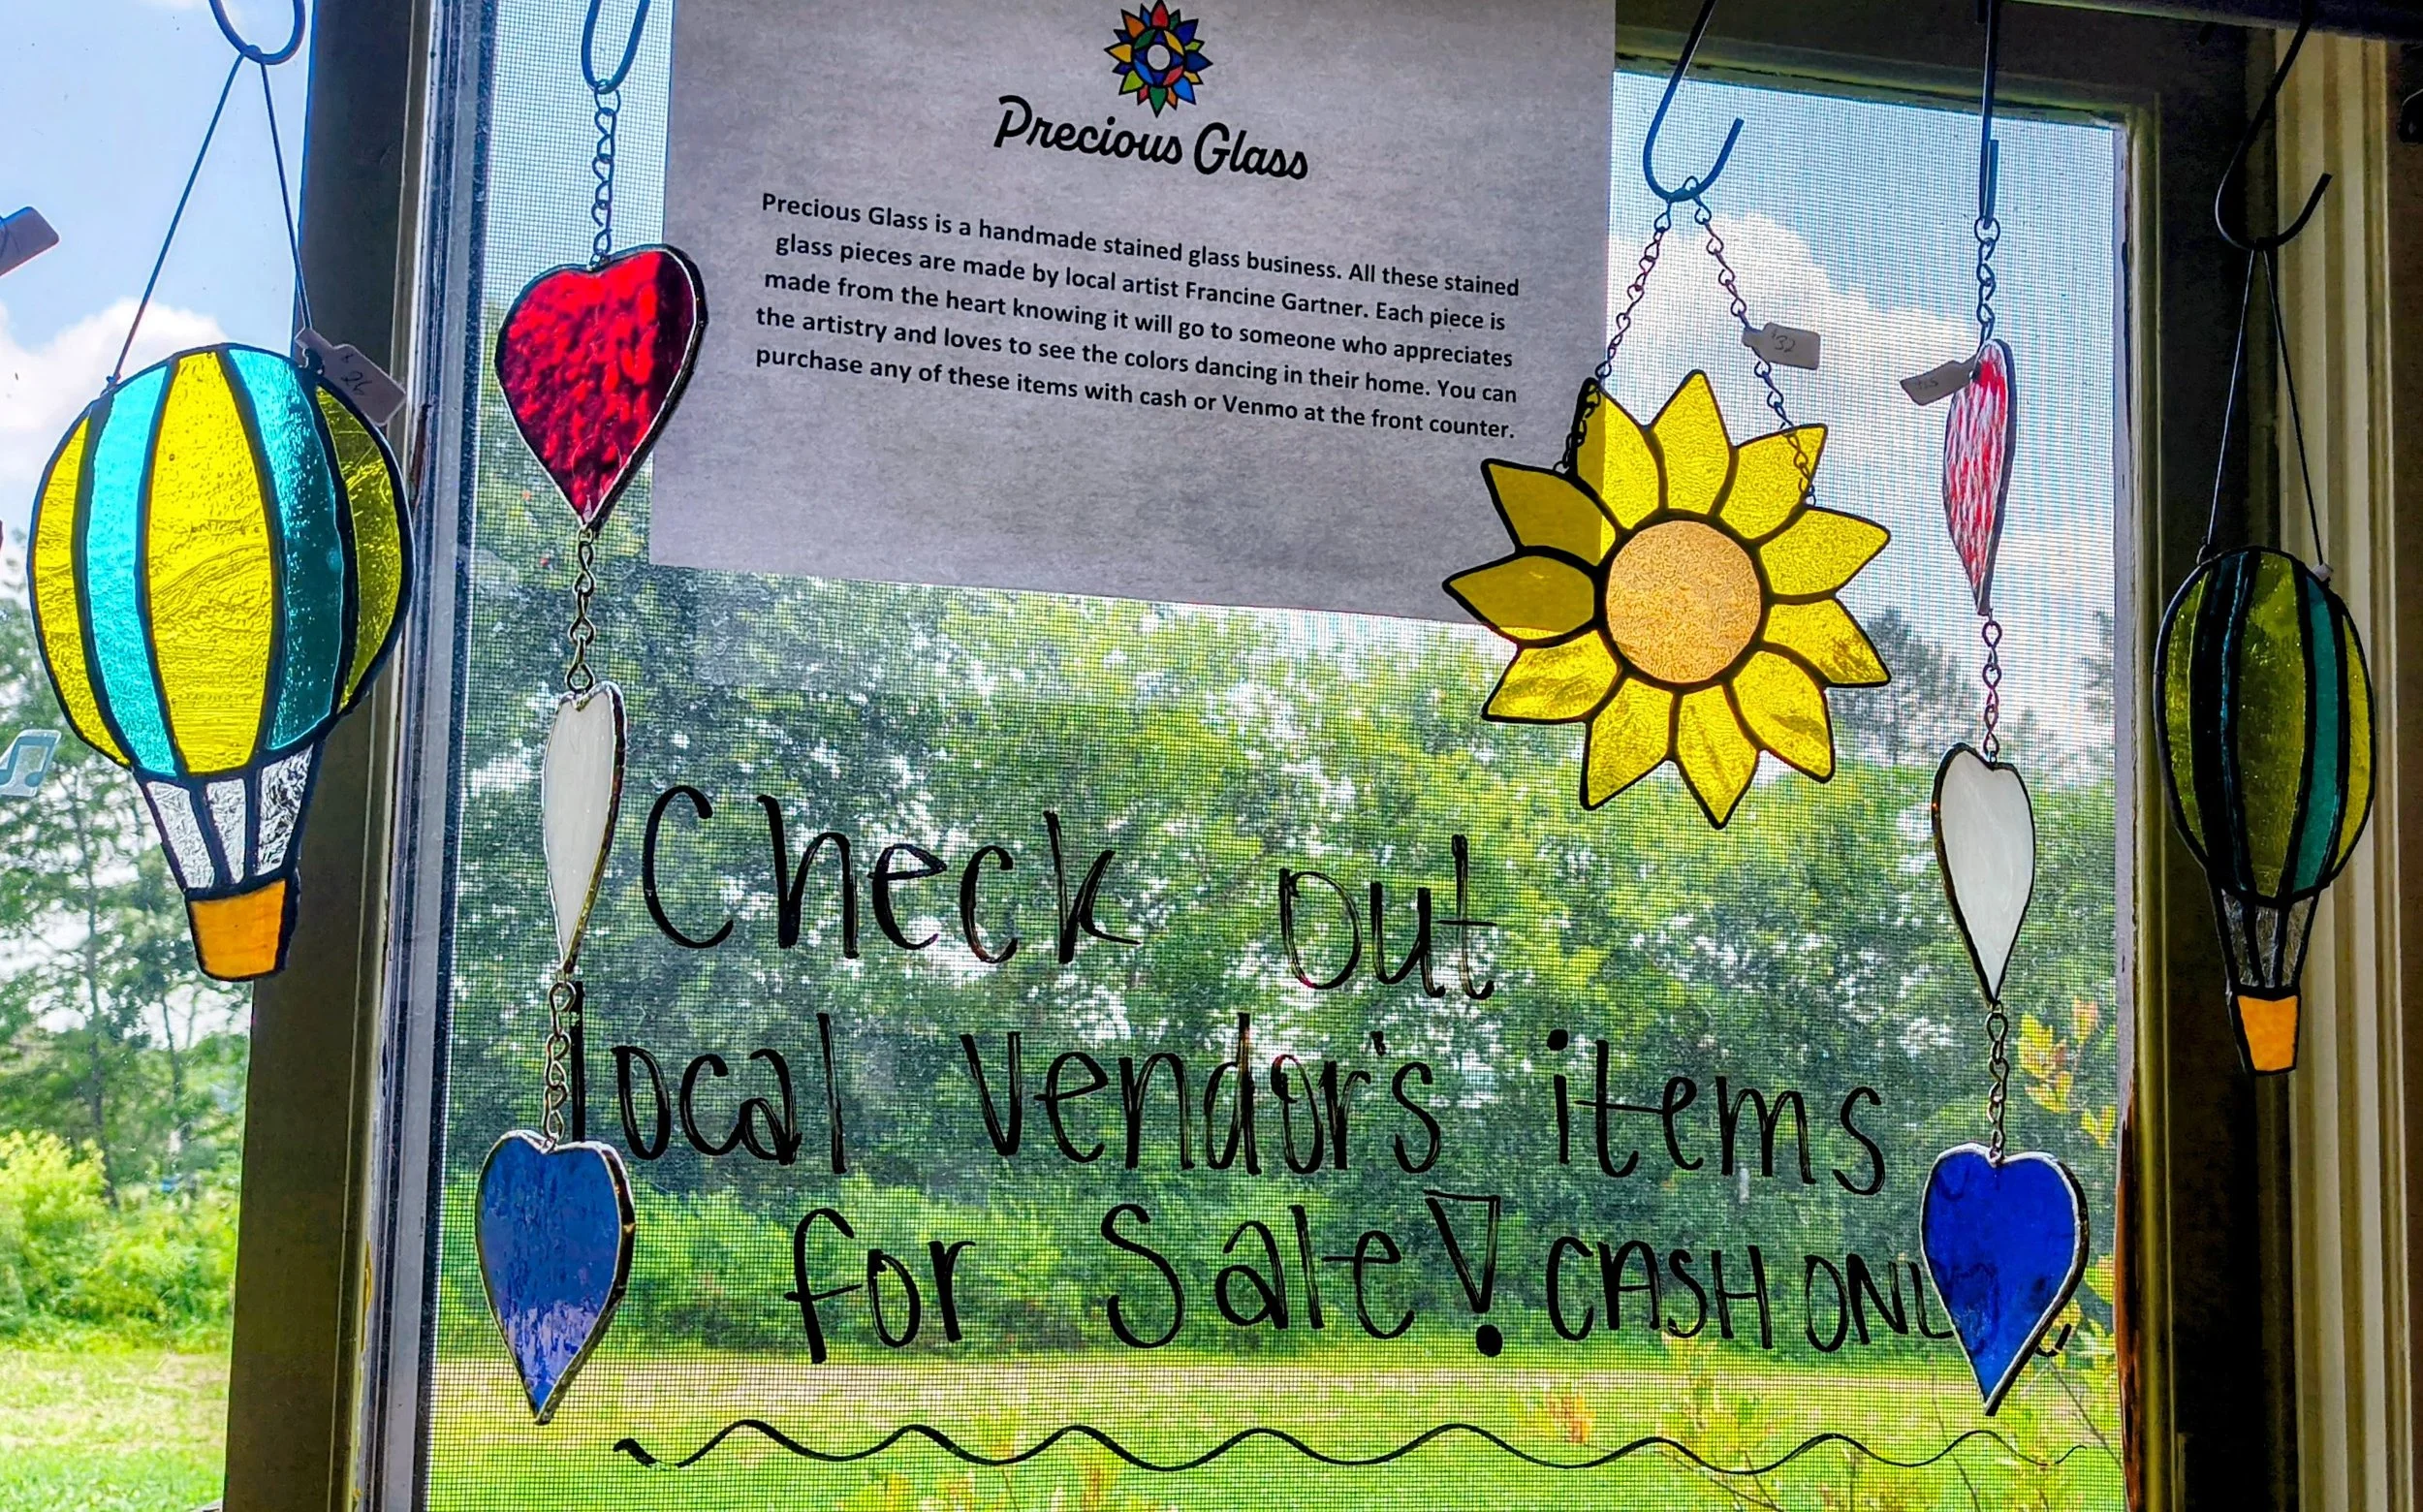 Precious Glass
Precious Glass is a handmade stained glass business. All these stained
glass pieces are made by local artist Francine Gartner. Each piece is
made from the heart knowing it will go to someone who appreciates
the artistry and loves to see the colors dancing in their home. You can
purchase any of these items with cash or Venmo at the front counter.
$26
$32
Check out
local vendor's items
for Sale! CASH ONL